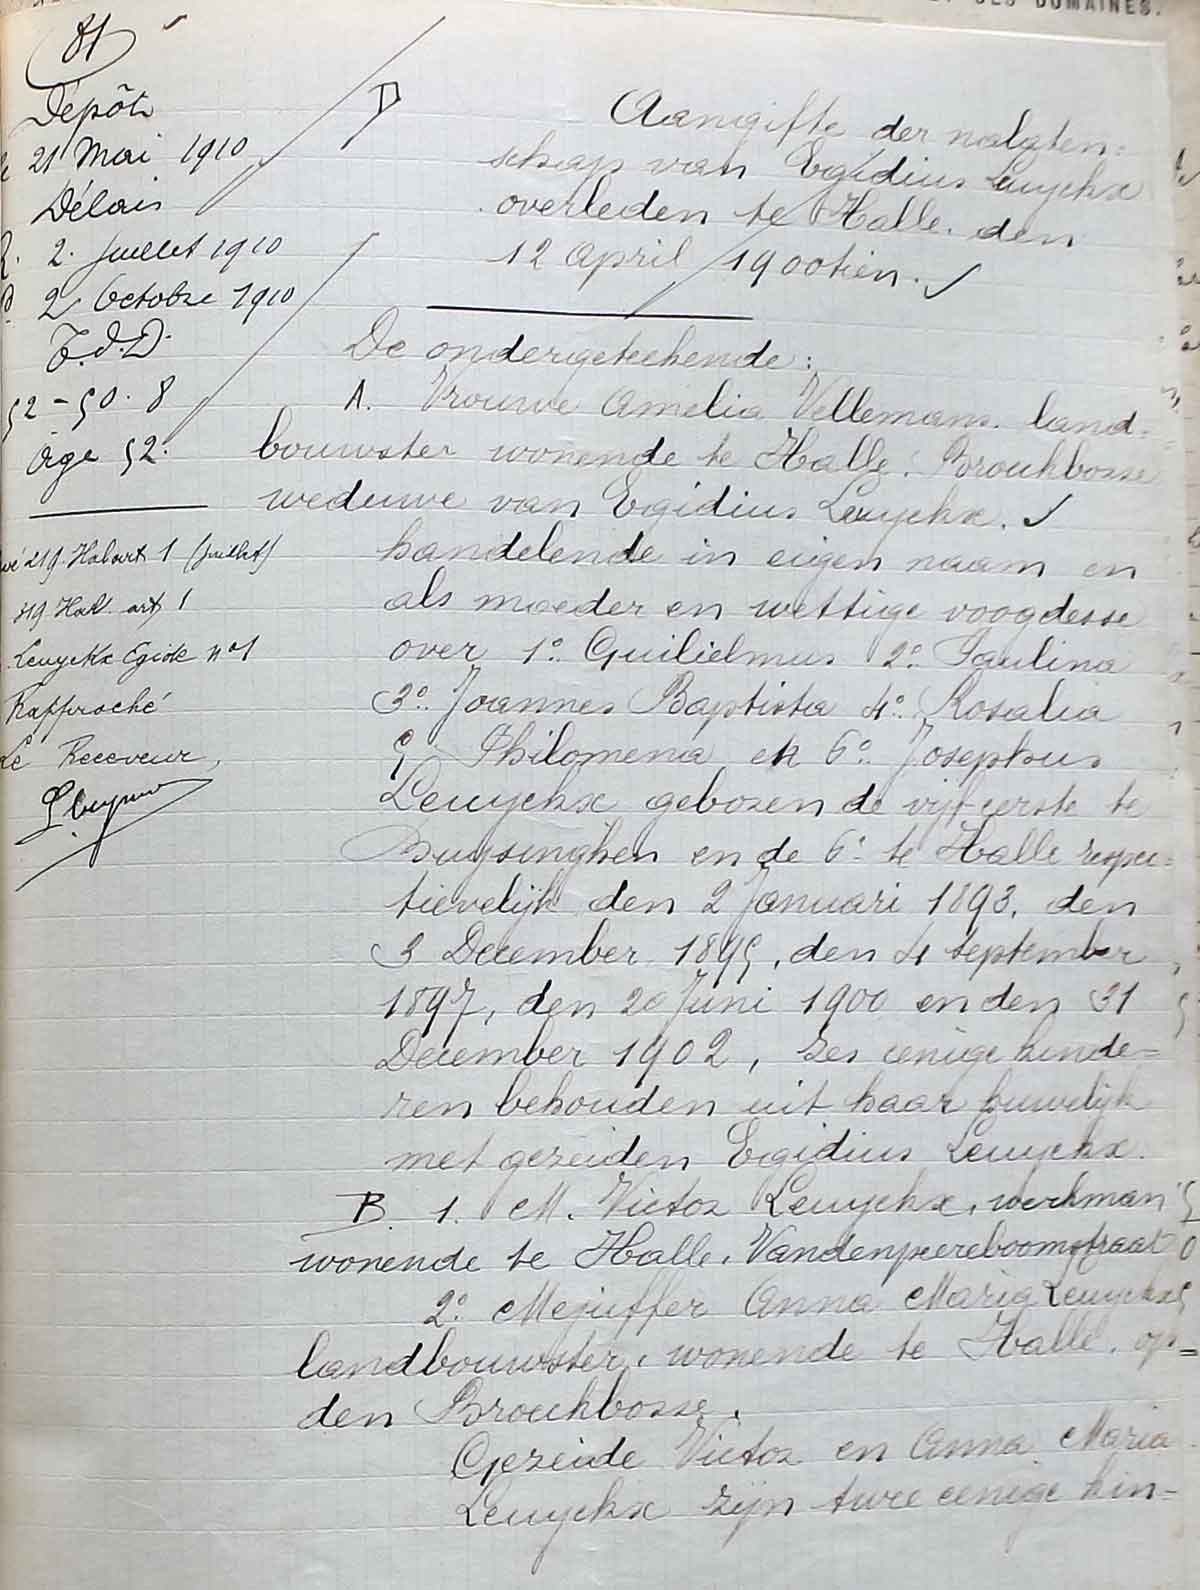 DES DOMAINES.
81
Dépôt
21 Mai 1910
Délais
2. Juillet 1910
2 Octobre 1910
T.d.D.
52 - 50. 8
Age 52.
219. Hal art 1 (juillet)
Hal art 1
Leuyckx Egide n°1
Rapproché
Le Receveur,
Aangifte der nalaten=
schap van Egidius Leuyckx
overleden te Halle. den
12 April 1900tien.
De ondergeteekende:
A. Vrouwe Amelia Vellemans. land=
bouwster wonende te Halle. Brouckbosse
weduwe van Egidius Leuyckx.
handelende in eigen naam en
als moeder en wettige voogdesse
over 1°. Guilielmus 2°. Paulina
3°. Joannes Baptista 4°. Rosalia
5 Philomena en 6°. Josephus
Leuyckx geboren de vijf eerste te
Buysinghen en de 6°. te Halle respec=
tievelijk den 2 Januari 1893, den
3 December 1895, den 4 september
1897, den 20 Juni 1900 en den 31
December 1902, zes eenige kinde=
ren behouden uit haar huwelijk
met gezeiden Egidius Leuyckx.
B. 1. M. Victor Leuyckx, werkman
wonende te Halle, Vandenpeereboomstraat
2°. Mejuffer Anna Maria Leuyckx
landbouwster, wonende te Halle. op=
den Brouckbosse.
Gezeide Victor en Anna Maria
Leuyckx zijn twee eenige kin-